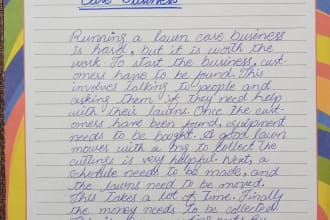 Care Business
Running a lawn care business
is hard, but it is worth the
work. To start the business, cust-
omers have to be found. This
involves talking to people and
asking them if they need help
with their lawns. Once the cust-
omers have been found, equipment
needs to be bought. A good lawn
mower with a bag to collect the
cuttings is very helpful. Next, a
schedule needs to be made, and
the lawns need to be mowed.
This takes a lot of time. Finally
the money needs to be collected.